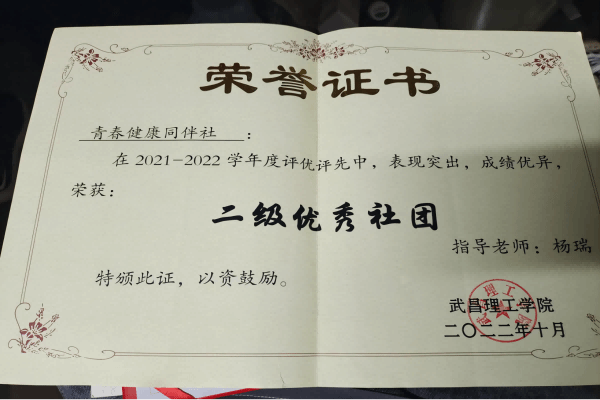 荣誉证书
青春健康同伴社 :
在 2021-2022 学年度评优评先中，表现突出，成绩优异，
荣获：
二级优秀社团
指导老师：杨瑞
特颁此证，以资鼓励。
武昌理工学院
二〇二二年十月